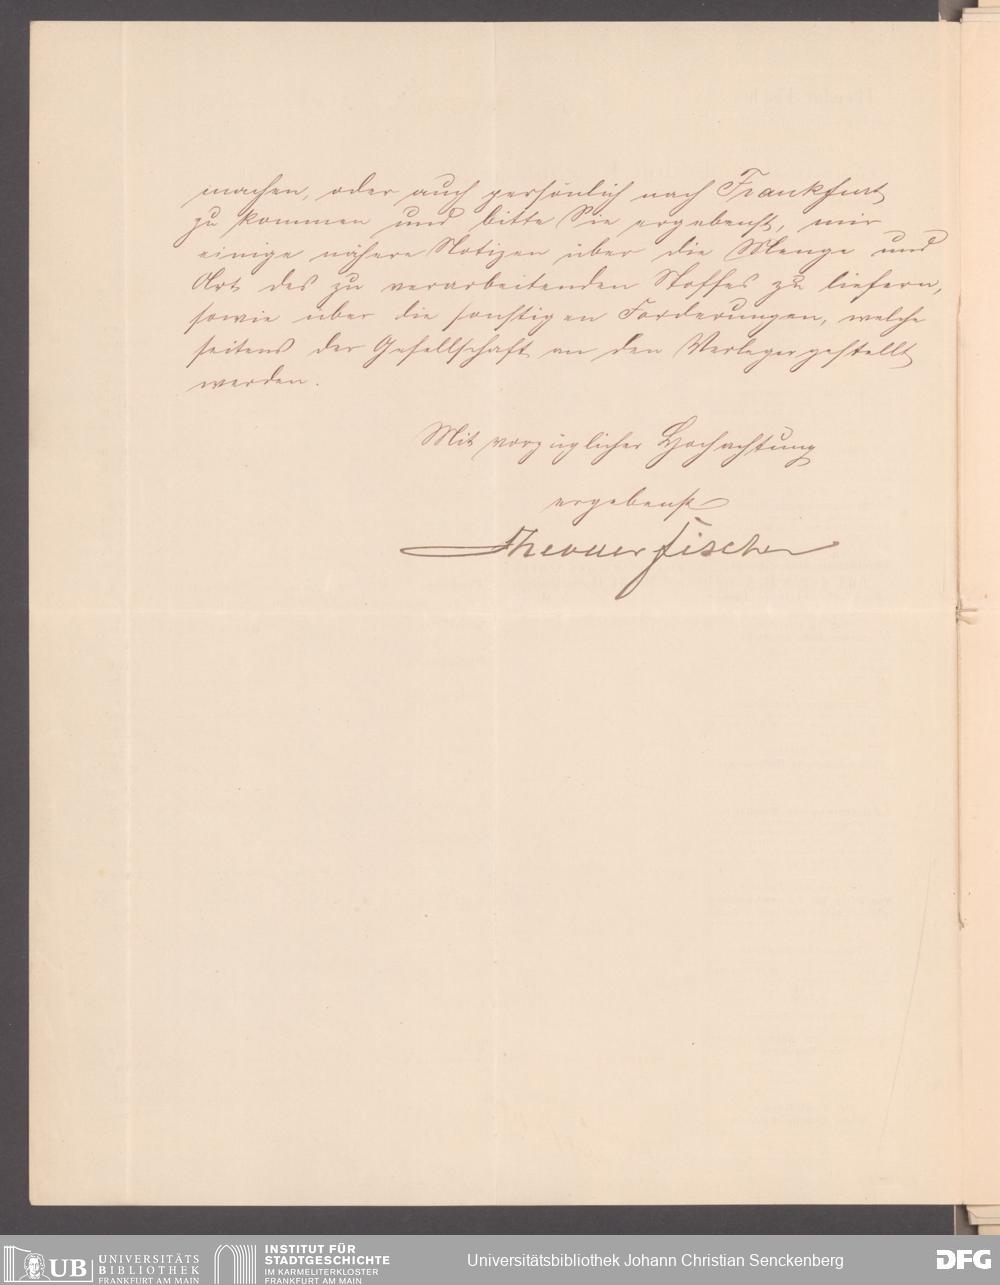 machen, oder auch persönlich nach Frankfurt
zu kommen und bitte Sie ergebenst, mir
einige nähere Notizen über die Menge und
Art des zu verarbeitenden Stoffes zu liefern,
sowie über die sonstigen Forderungen, welche
seitens der Gesellschaft an den Verleger gestellt
werden.
Mit vorzüglicher Hochachtung
ergebenst
Theodor Fischer
UB UNIVERSITÄTS
BIBLIOTHEK
FRANKFURT AM MAIN
INSTITUT FÜR
STADTGESCHICHTE
IM KARMELITERKLOSTER
FRANKFURT AM MAIN
Universitätsbibliothek Johann Christian Senckenberg
DFG